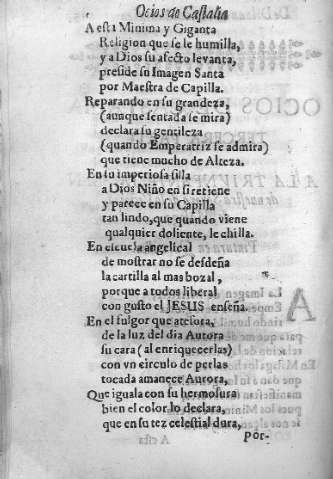 Ocios de Castalia
A esta Minima y Giganta
Religion que se le humilla,
y a Dios su afecto levanta,
preside su Imagen Santa
por Maestra de Capilla.
Reparando en su grandeza,
(aunque sentada se mira)
declara su gentileza
(quando Emperatriz se admira)
que tiene mucho de Alteza.
En su imperiosa silla
a Dios Niño en si retiene
y parece en su Capilla
tan lindo, que quando viene
qualquier doliente, le chilla.
En escuela angelical
de mostrar no se desdeña
la cartilla al mas bozal,
porque a todos liberal
con gusto el JESUS enseña.
En el fulgor que atesora,
de la luz del dia Autora
su cara (al enriquecerlas)
con vn circulo de perlas
tocada amanece Aurora,
Que iguala con su hermosura
bien el color lo declara,
que en su tez celestial dura,
por-